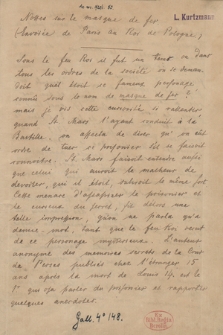 L. Kurtzmann
Notes sur le masque de fer
(Envoyée de Paris au Roi de Pologne)
Sous le feu Roi il fut un temps où dans
tous les ordres de la société on se demandait
quel était ce fameux personnage
connu sous le nom de masque de fer
mais je vis cette curiosité se ralentir quand
St. Mars l'ayant conduit à la
Bastille, on affecta de dire qu'on avait
ordre de tuer le prisonnier s'il se faisait
connaître. St. Mars faisait entendre
que celui qui aurait le malheur de
dévoiler qui il était subirait le même sort.
Cette menace d'assassiner le prisonnier et
le curieux du secret, fit dès lors une
telle impression, qu'on ne parla qu'à
demi-mot, tant que le feu Roi vécut
de ce personnage mystérieux. L'auteur
anonyme des mémoires secrets de la cour
de Perse publiés chez l'étranger 15
ans après la mort de Louis 14, est le
1er qui osa parler du prisonnier et rapporter
quelques anecdotes.
Gall. 4º 148.